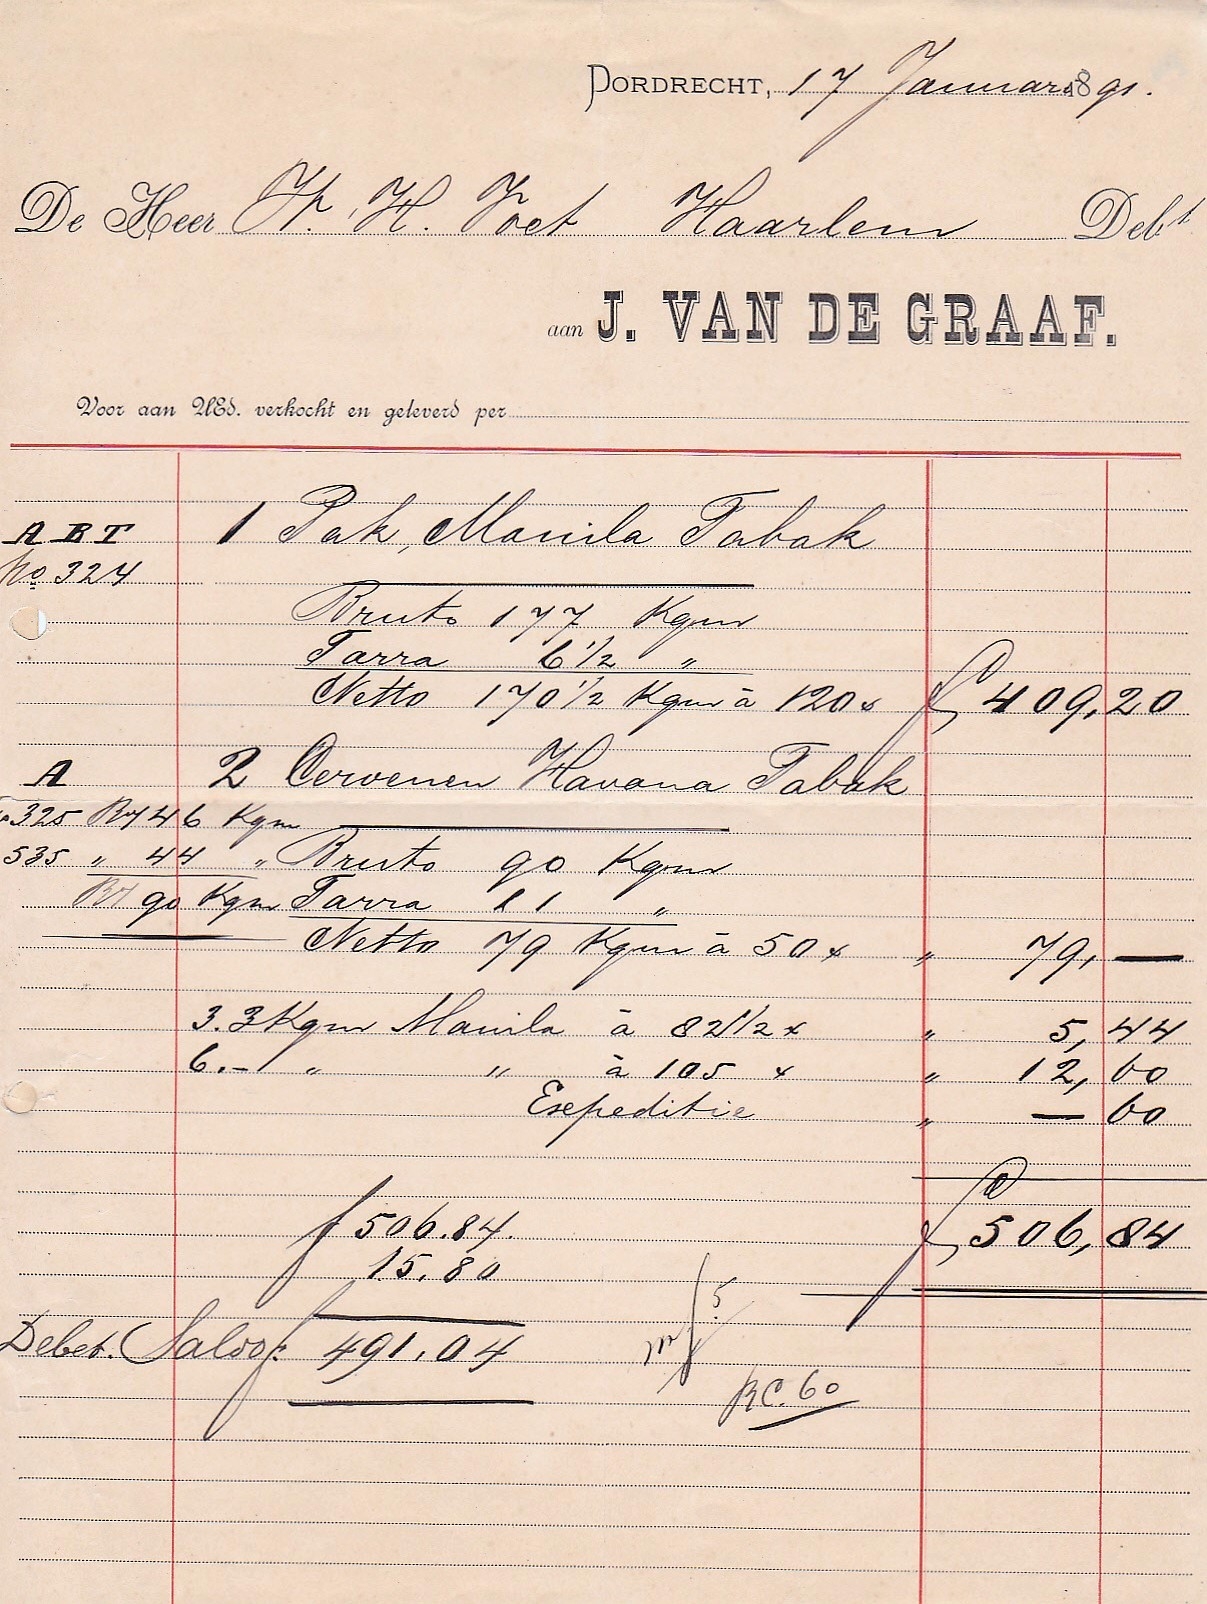 DORDRECHT, 17 Januari 1891.
De Heer H. H. Voet Haarlem Debt
aan J. VAN DE GRAAF.
Voor aan UEd. verkocht en geleverd per
A B T 1 Pak Manila Tabak
No 324
Bruto 177 Kgm
Tarra 6 1/2 "
Netto 170 1/2 Kgm à 120 x f 409,20
A 2 Cervenen Havana Tabak
325 Br 46 Kgm
535 " 44 " Bruto 90 Kgm
Br 90 Kgm Tarra 11 "
Netto 79 Kgm à 50 x " 79, —
3.3 Kgm Manila à 82 1/2 x " 5,44
6.- " " à 105 x " 12,60
Expeditie " — 60
f 506.84. f 506,84
15.80
Debet Saldo f. 491.04
5
RC. 60